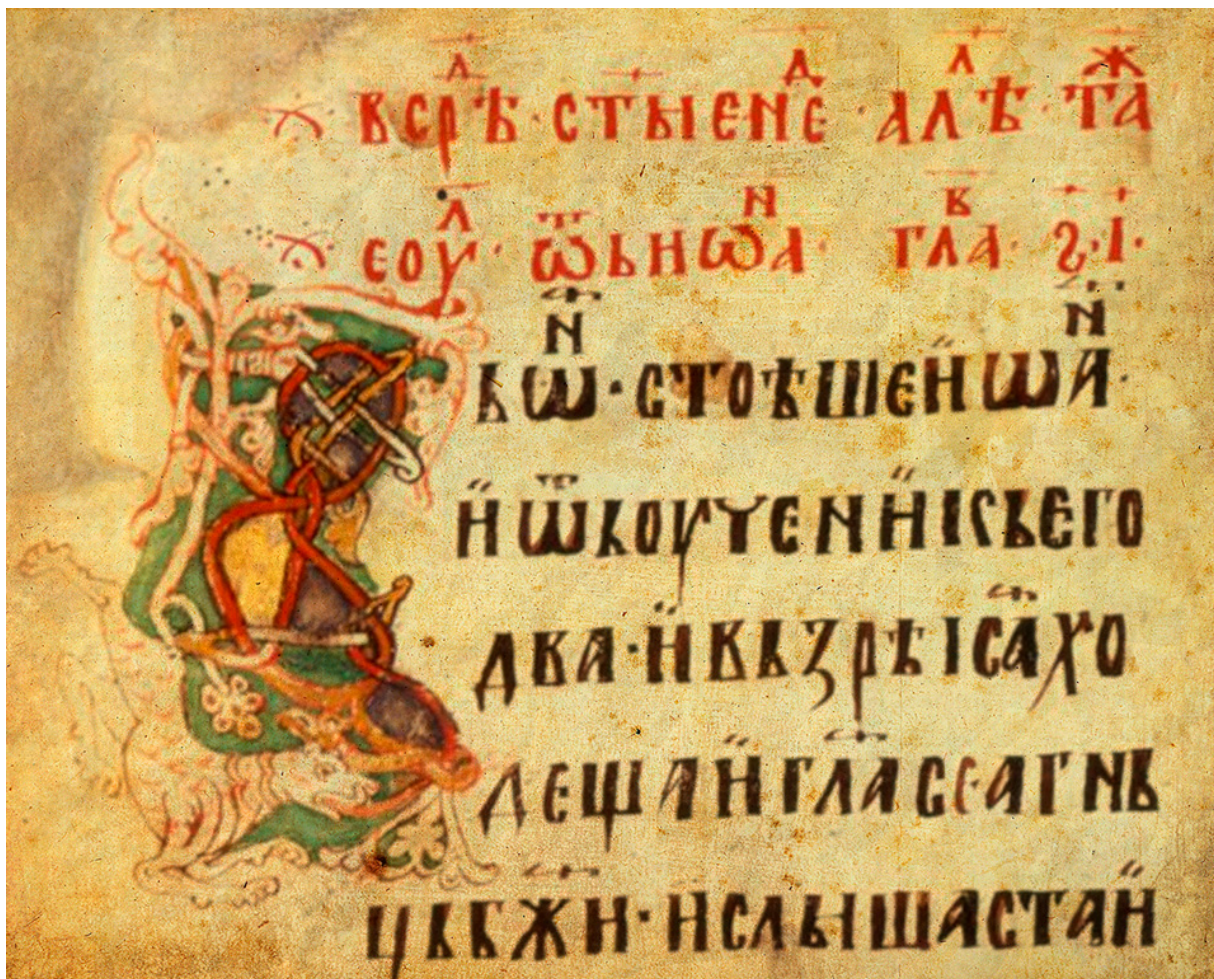 в срѣⷣ҇ · стꙑе нⷣе҇ · а л҄ѣ · таⷤ
еоуⷧ҇ · ѿ ьѡⷩа · глаⷡ · ꙅ҃і ·
в ѡⷩ҇ · стоѣше и҅ѡаⷩ҇ ·
и҅ ѿкоученик҅ісвего
два · и҅ вьзрѣ іс҃а хо
деща и҅ гл҃а се агнь
ць бж҃и · и҅слꙑшаста и҅